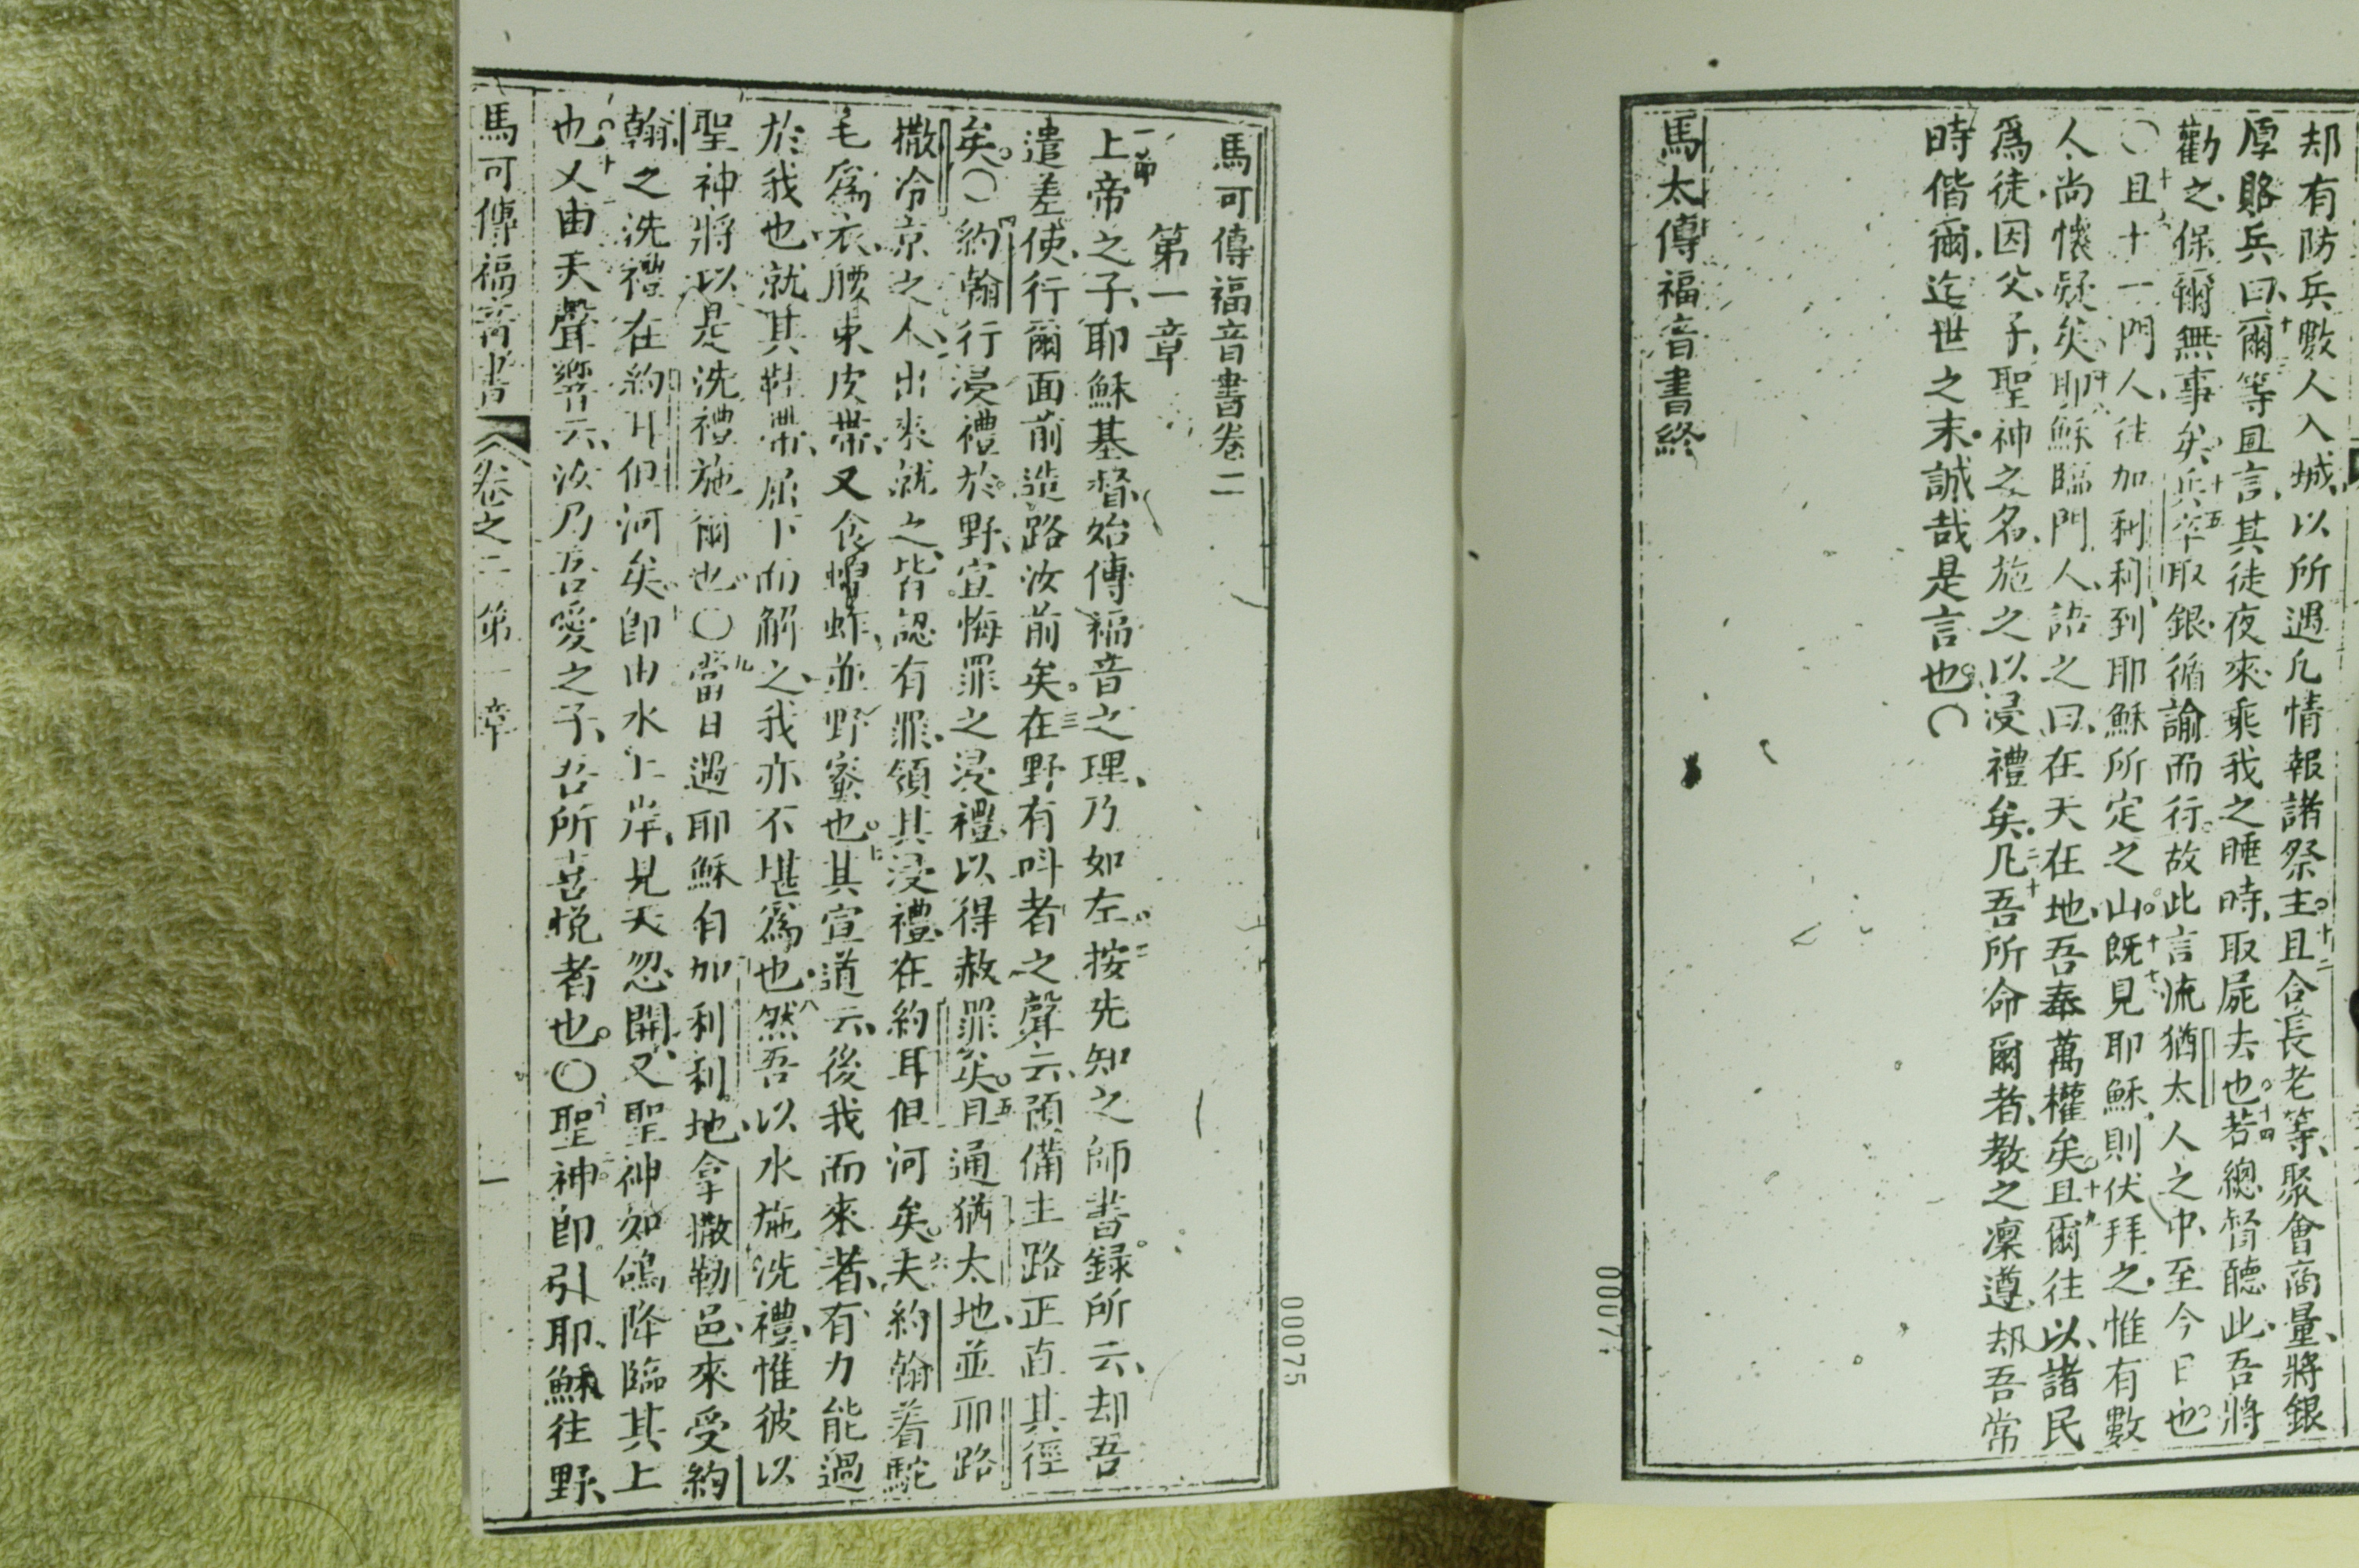 却有防兵數人入城、以所遇凡情報諸祭主。十二且合長老等、聚會商量、將銀
厚賂兵曰、十三爾等且言、其徒夜來、乘我之睡時、取屍去也。十四若總督聽此、吾將
勸之、保爾無事矣。十五兵卒取銀、循諭而行。故此言流猶太人之中、至今日也。
○十六且十一門人、徒加利利、到耶穌所定之山。十七既見耶穌、則伏拜之、惟有數
人尚懷疑矣。十八耶穌臨門人、語之曰、在天在地、吾奉萬權矣。十九且爾往以諸民
爲徒、因父、子、聖神之名、施之以浸禮矣。二十凡吾所命爾者、教之凜遵、却吾常
時偕爾、迄世之末、誠哉是言也。○
馬太傳福音書終
馬可傳福音書卷二
第一章
一節上帝之子、耶穌基督、始傳福音之理、乃如左。二按先知之師書錄所云、却吾
遣差使、行爾面前、造路汝前矣。三在野有呌者之聲云、預備主路、正直其徑
矣。○四約翰行浸禮於野、宣悔罪之浸禮、以得赦罪矣。五且通猶太地、並耶路
撒冷京之人、出來就之、皆認有罪、領其浸禮、在約耳但河矣。六夫約翰着駝
毛爲衣、腰束皮帶、又食蝗蚱、並野蜜也。七其宣道云、後我而來者、有力能過
於我也、就其鞋帶、屈下而解之、我亦不堪爲也。八然吾以水施洗禮、惟彼以
聖神將以是洗禮施爾也。○九當日遇耶穌自加利利地、拿撒勒邑來、受約
翰之洗禮、在約耳但河矣。十卽由水上岸、見天忽開、又聖神如鴿降臨其上
也。十一又由天聲響云、汝乃吾愛之子、吾所喜悅者也。○十二聖神卽引耶穌往野、
馬可傳福音書 卷之二 第一章 一
00075